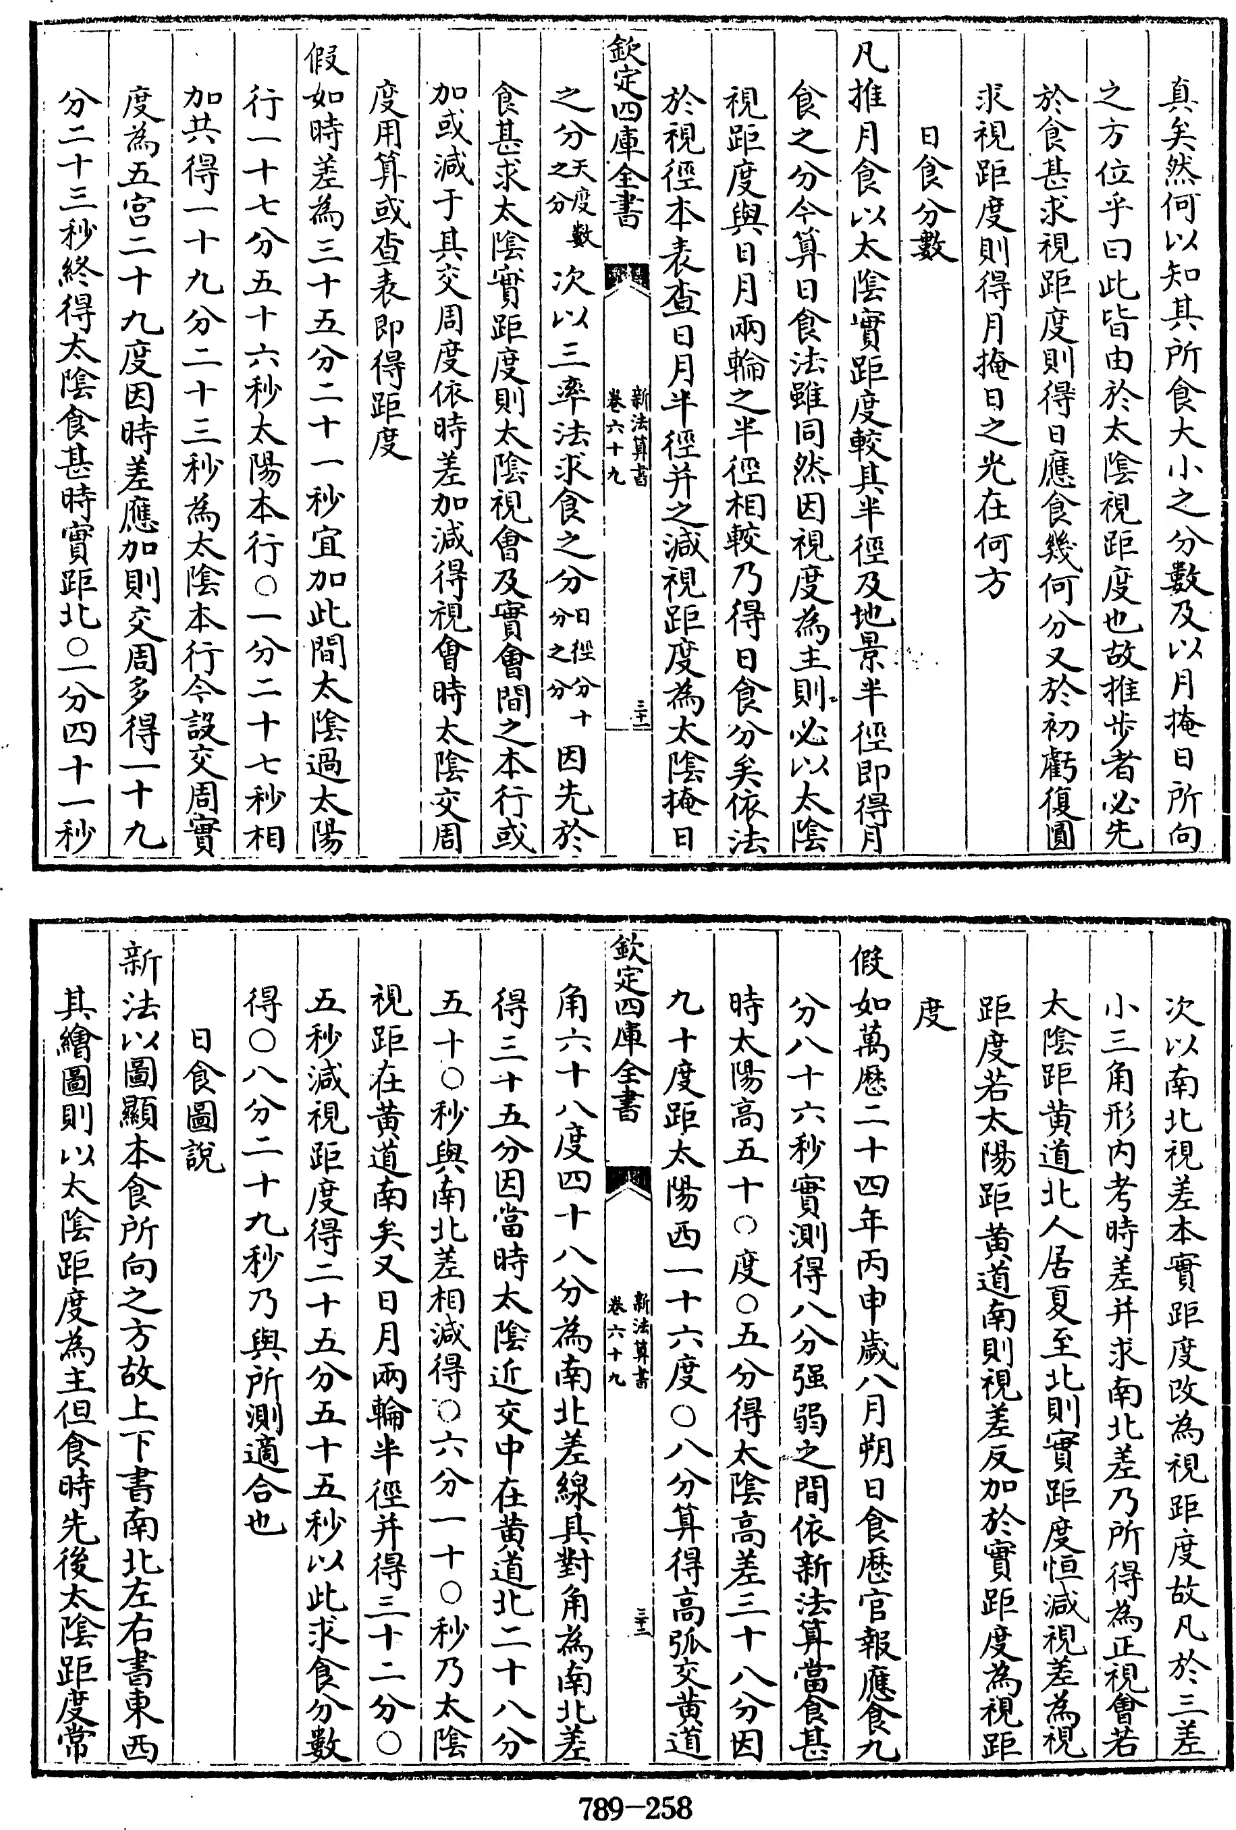 真矣然何以知其所食大小之分數及以月掩日所向
之方位乎曰此皆由於太陰視距度也故推步者必先
於食甚求視距度則得日應食幾何分又於初虧復圓
求視距度則得月掩日之光在何方
日食分數
凡推月食以太陰實距度較其半徑及地景半徑即得月
食之分今算日食法雖同然因視度為主則必以太陰
視距度與日月兩輪之半徑相較乃得日食分矣依法
於視徑本表查日月半徑并之減視距度為太陰掩日
欽定四庫全書
新法算書
卷六十九
三十一
之分天度數之分次以三率法求食之分日徑分十分之分因先於
食甚求太陰實距度則太陰視會及實會間之本行或
加或減于其交周度依時差加減得視會時太陰交周
度用算或查表即得距度
假如時差為三十五分二十一秒宜加此間太陰過太陽
行一十七分五十六秒太陽本行〇一分二十七秒相
加共得一十九分二十三秒為太陰本行今設交周實
度為五宫二十九度因時差應加則交周多得一十九
分二十三秒終得太陰食甚時實距北〇二分四十一秒
次以南北視差本實距度改為視距度故凡於三差
小三角形內考時差并求南北差乃所得為正視會若
太陰距黄道北人居夏至北則實距度恒減視差為視
距度若太陽距黄道南則視差反加於實距度為視距
度
假如萬厯二十四年丙申歲八月朔日食厯官報應食九
分八十六秒實測得八分强弱之間依新法算當食甚
時太陽高五十〇度〇五分得太陰高差三十八分因
九十度距太陽西一十六度〇八分算得高弧交黄道
欽定四庫全書
新法算書
卷六十九
三十二
角六十八度四十八分為南北差線其對角為南北差
得三十五分因當時太陰近交中在黄道北二十八分
五十〇秒與南北差相減得〇六分一十〇秒乃太陰
視距在黄道南矣又日月兩輪半徑并得三十二分〇
五秒減視距度得二十五分五十五秒以此求食分數
得〇八分二十九秒乃與所測適合也
日食圖說
新法以圖顯本食所向之方故上下書南北左右書東西
其繪圖則以太陰距度為主但食時先後太陰距度常
789-258